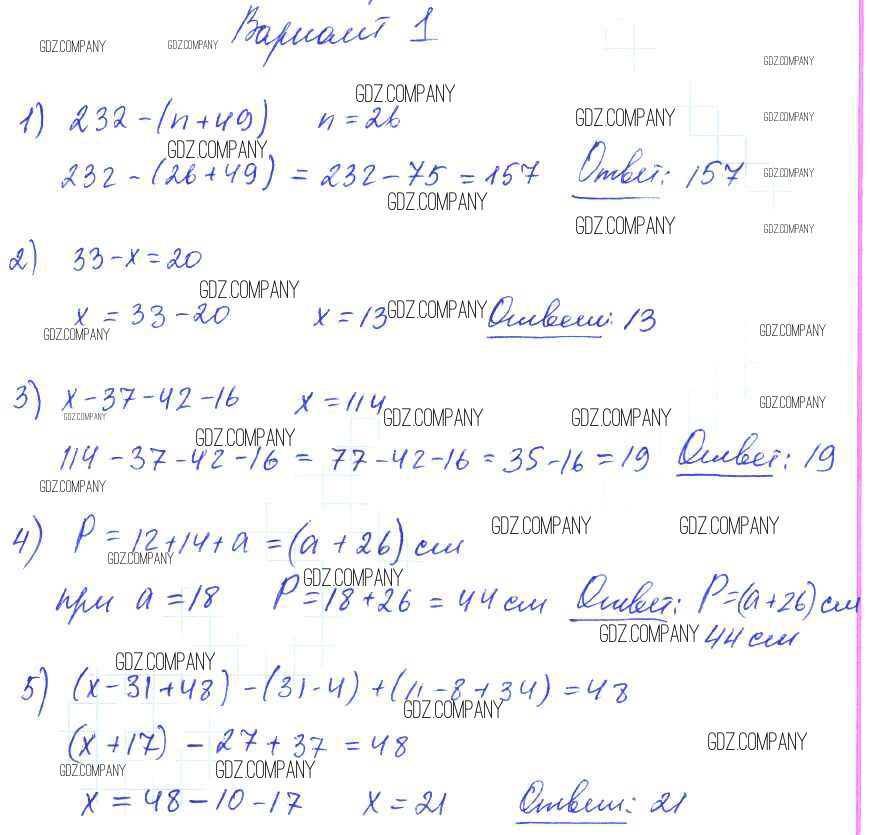 Вариант 1
1) 232 - (n + 49) n = 26
232 - (26 + 49) = 232 - 75 = 157 Ответ: 157
2) 33 - x = 20
x = 33 - 20 x = 13 Ответ: 13
3) x - 37 - 42 - 16 x = 114
114 - 37 - 42 - 16 = 77 - 42 - 16 = 35 - 16 = 19 Ответ: 19
4) P = 12 + 14 + a = (a + 26) см
при a = 18 P = 18 + 26 = 44 см Ответ: P = (a + 26) см
44 см
5) (x - 31 + 48) - (31 - 4) + (11 - 8 + 34) = 48
(x + 17) - 27 + 37 = 48
x = 48 - 10 - 17 x = 21 Ответ: 21
GDZ.COMPANY